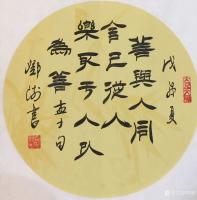 戊戌夏
善與人同
舍己從人
樂取于人以
為善 孟子句
書